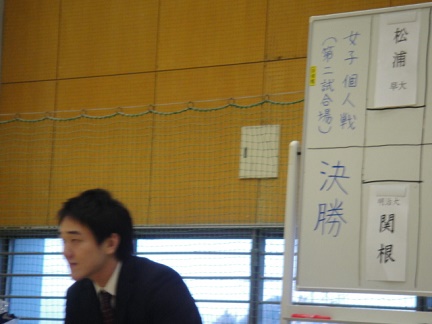 女子個人戦
（第二試合場）
決勝
松浦
早大
明治大
関根